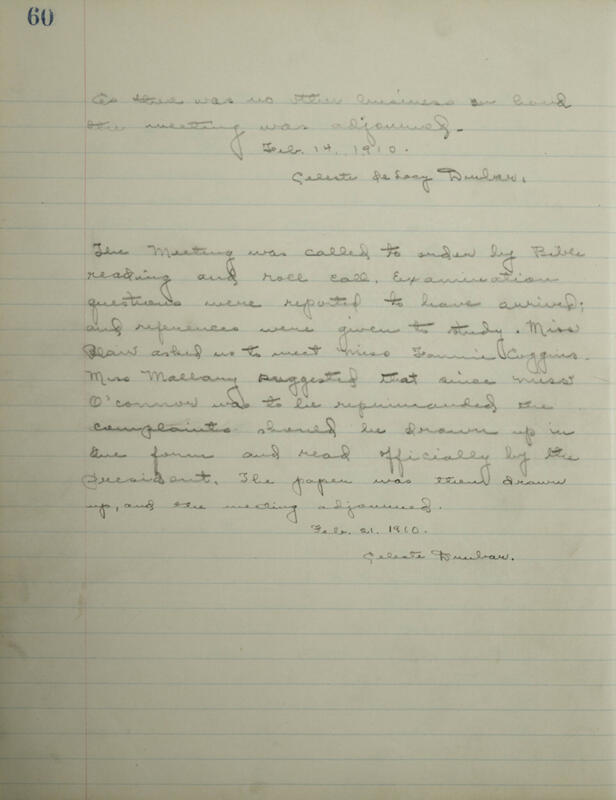 60
As there was no other business on hand
the meeting was adjourned.
Feb. 14, 1910.
Celeste de Lacy Dunbar.
The Meeting was called to order by Bible
reading and roll call. Examination
questions were reported to have arrived;
and references were given to study. Miss
asked us to meet Miss Fannie Coggins.
Miss Mallary suggested that since Miss
O'connor was to be reprimanded the
complaints should be drawn up in
due form and read officially by the
President. The paper was then drawn
up, and the meeting adjourned.
Feb. 21. 1910.
Celeste Dunbar.